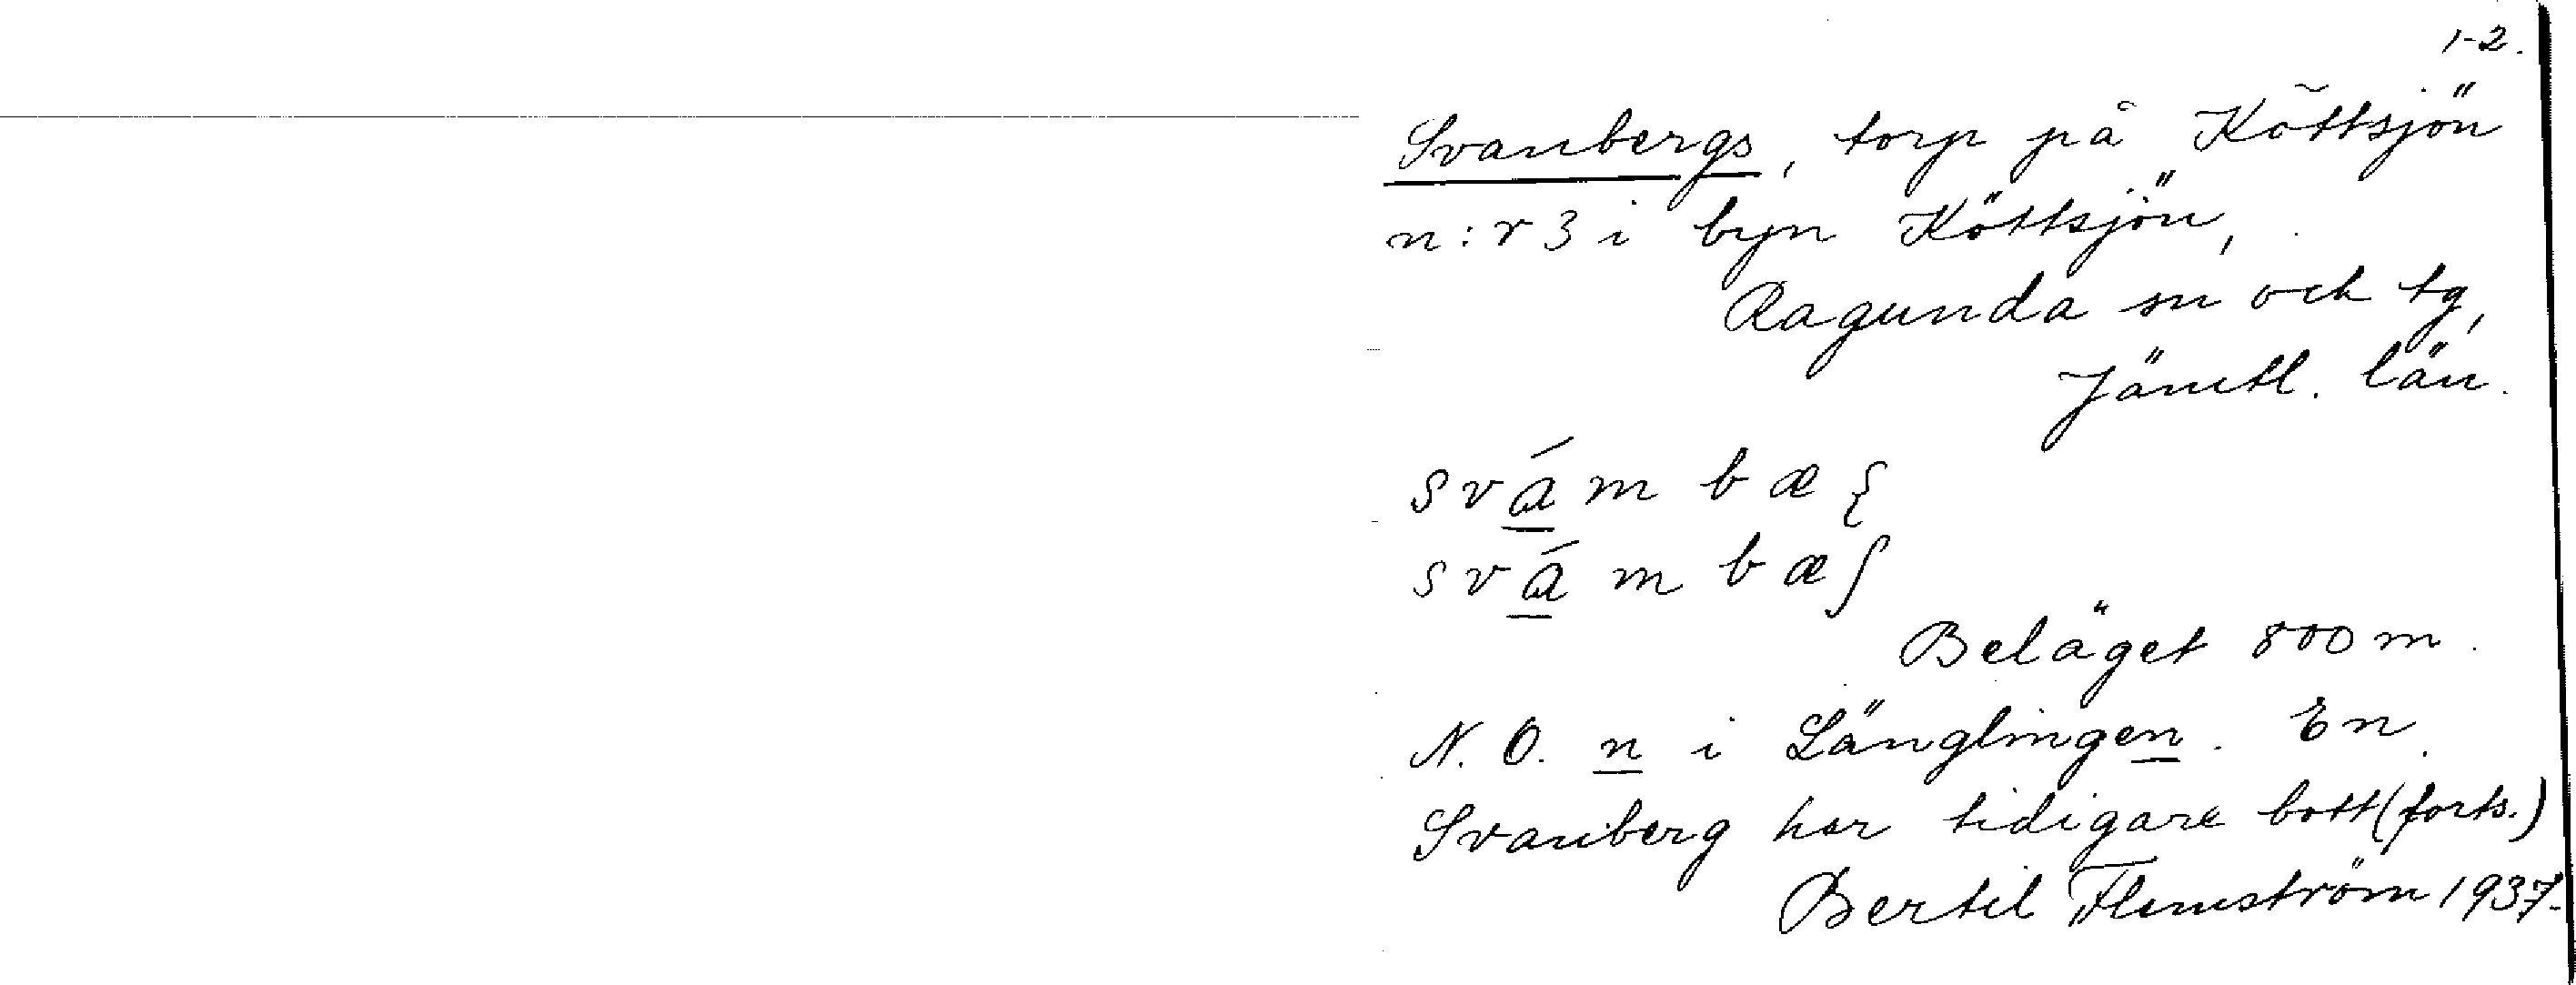 1-2.
Svanbergs, torp på Köttsjön
n:r 3 i byn Köttsjön,
Ragunda sn och tg,
Jämtl. län.
Beläget 800 m
N.O. n i Länglingen. En
Svanberg har tidigare bott (forts.)
Bertil Flemström 1937.